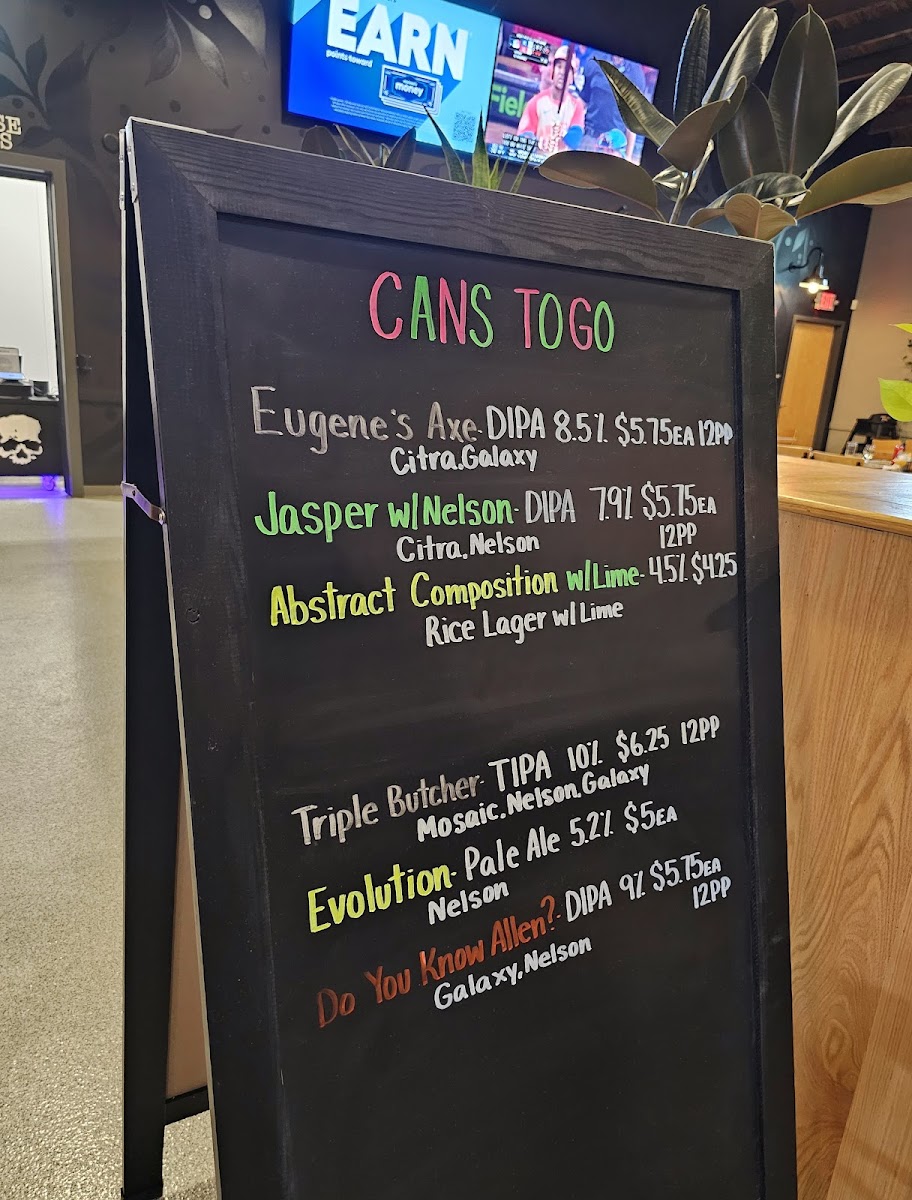 EARN
points toward
money
Fiel
SE
S
CANS TO GO
Eugene's Axe- DIPA 8.5% $5.75EA 12PP
Citra.Galaxy
Jasper w/Nelson- DIPA 7.9% $5.75EA
Citra.Nelson 12PP
Abstract Composition w/Lime- 4.5% $4.25
Rice Lager w/ Lime
Triple Butcher- TIPA 10% $6.25 12PP
Mosaic.Nelson.Galaxy
Evolution- Pale Ale 5.2% $5EA
Nelson
Do You Know Allen?- DIPA 9% $5.75EA
Galaxy.Nelson 12PP